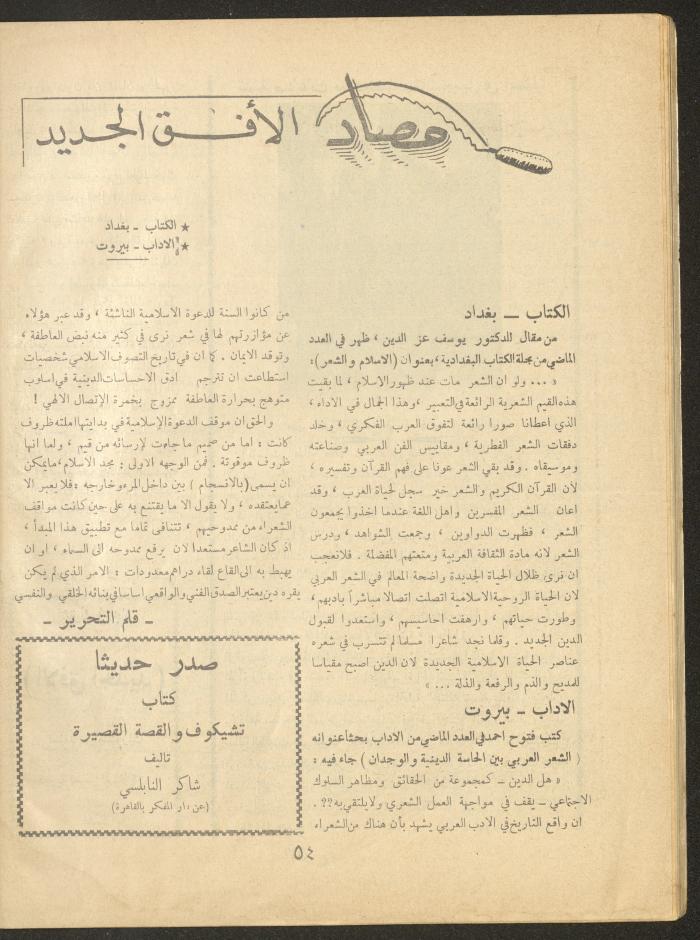 حصاد الأفق الجديد
★ الكتاب - بغداد
★ الاداب - بيروت
الكتاب — بغداد
من مقال للدكتور يوسف عز الدين ، ظهر في العدد
الماضي من مجلة الكتاب البغدادية ، بعنوان ( الاسلام والشعر ) :
« ... ولو ان الشعر مات عند ظهور الاسلام ، لما بقيت
هذه القيم الشعرية الرائعة في التعبير ، وهذا الجمال في الاداء ،
الذي اعطانا صورا رائعة لتفوق العرب الفكري ، وخلد
دفقات الشعر الفطرية ، ومقاييس الفن العربي وصناعته
وموسيقاه . وقد بقي الشعر عونا على فهم القرآن وتفسيره ،
لأن القرآن الكريم والشعر خير سجل لحياة العرب ، وقد
اعان الشعر المفسرين واهل اللغة عندما اخذوا يجمعون
الشعر ، فظهرت الدواوين ، وجمعت الشواهد ، ودرس
الشعر لانه مادة الثقافة العربية ومتعتهم المفضلة . فلا نعجب
ان نرى ظلال الحياة الجديدة واضحة المعالم في الشعر العربي
لان الحياة الروحية الاسلامية اتصلت اتصالا مباشراً بادبهم ،
وطورت حياتهم ، وارهفت احاسيسهم ، واستعدوا لقبول
الدين الجديد . وقلما نجد شاعرا مسلما لم تتسرب في شعره
عناصر الحياة الاسلامية الجديدة لان الدين اصبح مقياسا
للمديح والذم والرفعة والذلة ... »
الاداب - بيروت
كتب فتوح احمد في العدد الماضي من الاداب بحثا عنوانه
( الشعر العربي بين الحاسة الدينية والوجدان ) جاء فيه :
« هل الدين - كمجموعة من الحقائق ومظاهر السلوك
الاجتماعي - يقف في مواجهة العمل الشعري ولا يلتقي به ؟؟ .
ان واقع التاريخ في الادب العربي يشهد بأن هناك من الشعراء
من كانوا السنة للدعوة الاسلامية الناشئة ، وقد عبر هؤلاء
عن مؤازرتهم لها في شعر نرى في كثير منه نبض العاطفة ،
وتوقد الايمان . كما ان في تاريخ التصوف الاسلامي شخصيات
استطاعت ان تترجم ادق الاحساسات الدينية في اسلوب
متوهج بحرارة العاطفة ممزوج بخمرة الإتصال الالهي !
والحق ان موقف الدعوة الإسلامية في بدايتها املته ظروف
كانت : اما من صميم ما جاءت لإرسائه من قيم ، واما انها
ظروف موقوتة . فمن الوجهه الاولى : مجد الاسلام ، ما يمكن
ان يسمى ( بالانسجام ) بين داخل المرء وخارجه : فلا يعبر الا
عما يعتقده ، ولا يقول الا ما يقتنع به على حين كانت مواقف
الشعراء من ممدوحيهم ، تتنافى تماما مع تطبيق هذا المبدأ ،
اذ كان الشاعر مستعدا لان يرفع ممدوحه الى السماء ، او ان
يهبط به الى القاع لقاء دراهم معدودات : الامر الذي لم يكن
يقره دين يعتبر الصدق الفني والواقعي اساسا في بنائه الخلقي والنفسي
- قلم التحرير -
صدر حديثا
كتاب
تشيكوف والقصة القصيرة
تاليف
شاكر النابلسي
( عن دار المفكر بالقاهرة )
٥٤